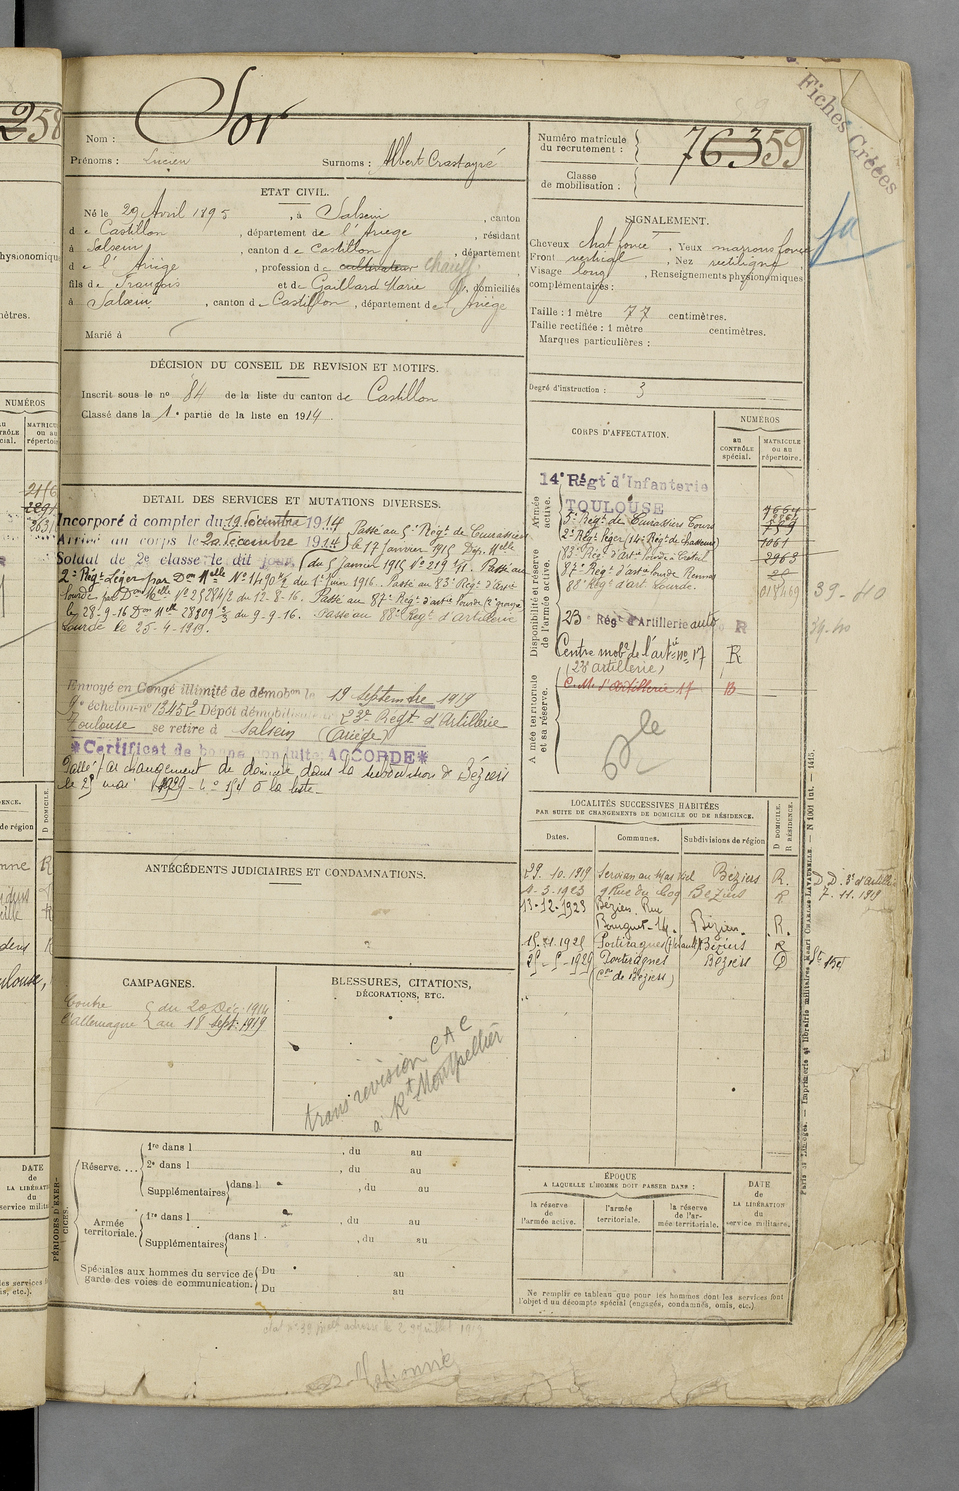 258
Sor
Nom :
Prénoms : Lucien Surnoms : Albert Crastayré
Numéro matricule du recrutement : 76 359
Classe de mobilisation :
Fiches Créées
ETAT CIVIL.
Né le 29 Avril 1895, à Salsein, canton
de Castillon, département de l'Ariège, résidant
à Salsein, canton de Castillon, département
de l'Ariège, profession de cultivateur chauff.
fils de François et de Gaillard Marie, domiciliés
à Salsein, canton de Castillon, département de l'Ariège
Marié à
SIGNALEMENT.
Cheveux chat foncé, Yeux marrons foncé
Front vertical, Nez rectiligne
Visage long, Renseignements physionomiques
complémentaires :
Taille : 1 mètre 77 centimètres.
Taille rectifiée : 1 mètre centimètres.
Marques particulières :
DÉCISION DU CONSEIL DE REVISION ET MOTIFS.
Inscrit sous le no 84 de la liste du canton de Castillon
Classé dans la 1e partie de la liste en 1914.
Degré d'instruction : 3
DÉTAIL DES SERVICES ET MUTATIONS DIVERSES.
Incorporé à compter du 19 décembre 1914
Arrivé au corps le 20 décembre 1914
Soldat de 2e classe le dit jour
Passé au 5e Régt de Cuirassiers
le 17 janvier 1915 Don Melle
du 5 janvier 1915 No 219 Passé au
2e Régt Léger par Don Melle No 1490 du 1er Juin 1916. Passé au 83e Régt d'Artie
Lourde par Don Melle No 25284/2 du 12-8-16. Passé au 87e Régt d'artie Lourde
le 28-9-16 Don Melle 28809 du 9-9-16. Passé au 88e Régt d'Artillerie
Lourde le 25-4-1919.
Envoyé en Congé illimité de démobon le 19 septembre 1919
9e échelon no 13452 Dépôt démobilisateur 23e Régt d'Artillerie
Toulouse se retire à Salsein (Ariège)
*Certificat de bonne conduite ACCORDÉ*
Passé par changement de domicile dans la subdivision de Béziers
le 25 mai 1929 - no 154 à la liste.
CORPS D'AFFECTATION.
NUMÉROS
au CONTRÔLE spécial.
MATRICULE ou au répertoire.
Armée active.
14e Régt d'Infanterie
TOULOUSE
5e Régt de Cuirassiers Tours
2e Régt léger (14e Régt de Chasseurs)
83e Régt d'Artie Lourde
87e Régt d'artie lourde Rennes
88e Régt d'art. Lourde.
2963
018469
Disponibilité et réserve de l'armée active.
23 Régt d'Artillerie auto R
Centre mobe de l'artie no 17 R
(23 artillerie)
C. M. d'artillerie 17
39-40
39-40
Armée territoriale et sa réserve.
LOCALITÉS SUCCESSIVES HABITÉES
PAR SUITE DE CHANGEMENTS DE DOMICILE OU DE RÉSIDENCE.
Dates. Communes. Subdivisions de région D DOMICILE. R RÉSIDENCE.
29.10.1919 Servian au Mas Viel Béziers R.
4-3-1923 9 Rue du Coq Béziers R
13-12-1923 Béziers Rue
Bouquet-14. Béziers. R.
15.11.1925 Portiragnes (Hérault) Béziers R
25-5-1929 Portiragnes Béziers D
(Con de Béziers)
D.D. 3e d'Artillerie
7-11-1919
ANTÉCÉDENTS JUDICIAIRES ET CONDAMNATIONS.
CAMPAGNES.
Contre l'Allemagne
du 20 Déc. 1914
au 18 sept. 1919
BLESSURES, CITATIONS, DÉCORATIONS, ETC.
trans revision C A C
à Rt Montpellier
PÉRIODES D'EXERCICES.
Réserve.... 1re dans l , du au
2e dans l , du au
Supplémentaires dans l , du au
Armée territoriale. 1re dans l , du au
Supplémentaires dans l , du au
Spéciales aux hommes du service de garde des voies de communication. Du au
Du au
ÉPOQUE
A LAQUELLE L'HOMME DOIT PASSER DANS :
la réserve de l'armée active.
l'armée territoriale.
la réserve de l'armée territoriale.
DATE de LA LIBÉRATION du service militaire.
Ne remplir ce tableau que pour les hommes dont les services font
l'objet d'un décompte spécial (engagés, condamnés, omis, etc.)
Paris et Limoges. — Imprimerie et librairie militaires Henri CHARLES-LAVAUZELLE. — N 1001 int. — 1415.